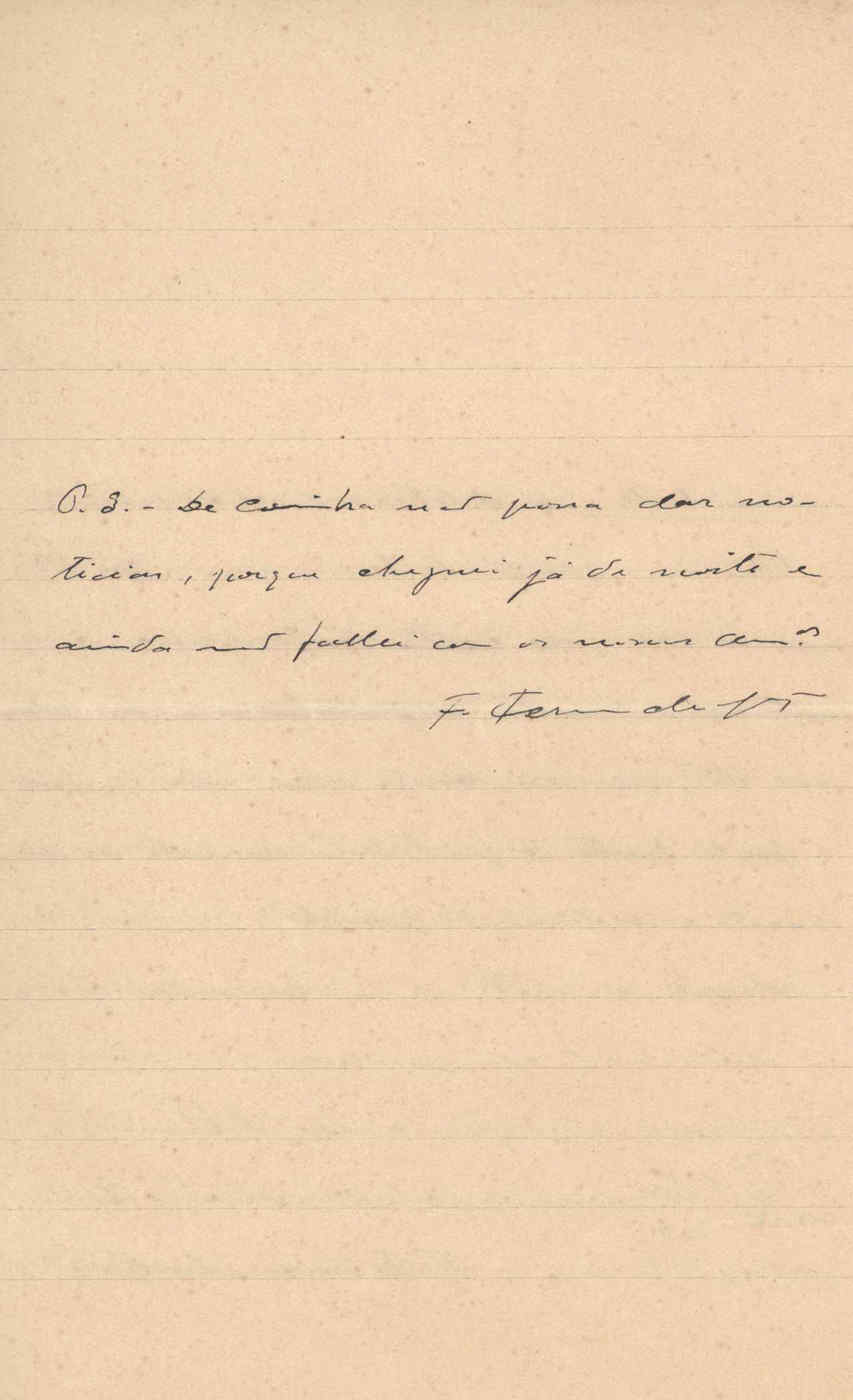 P. S. - De Coimbra não posso dar no-
ticias, porque cheguei já de noite e
ainda não fallei com os nossos am.os
F. Fern